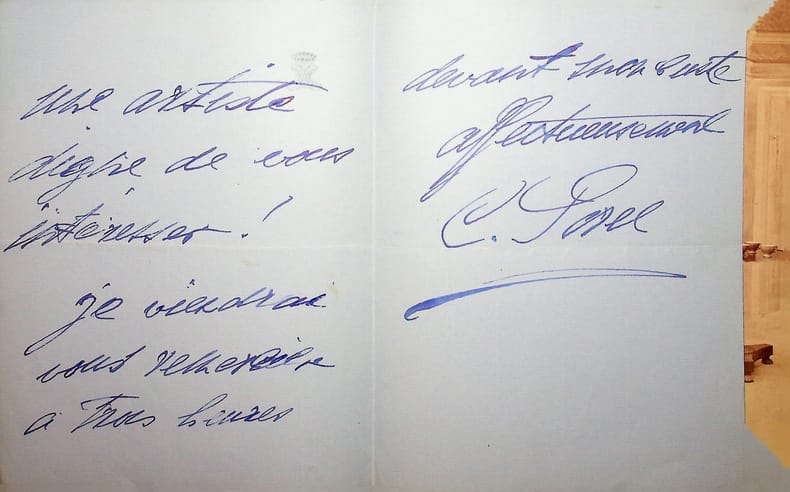 une artiste
digne de vous
intéresser !
je viendrai
vous remercier
à Trois heures
devant mon buste
affectueusement
C.